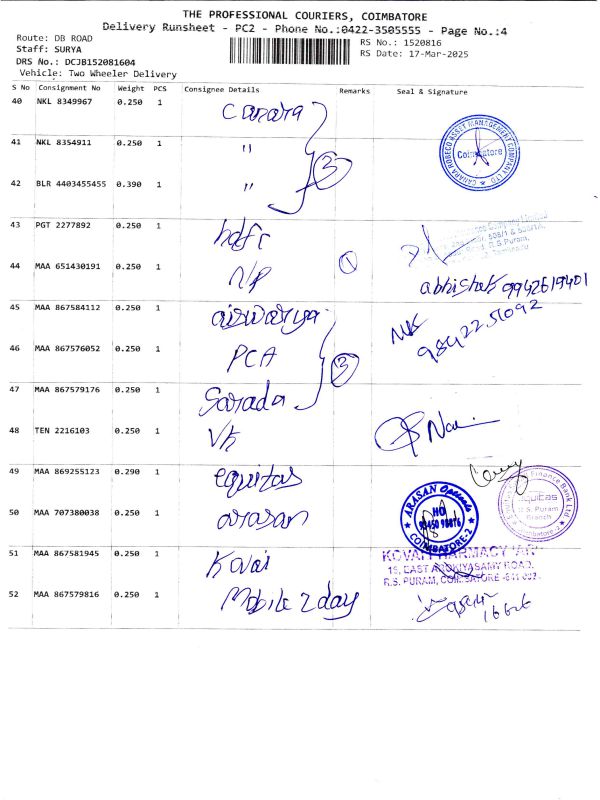 THE PROFESSIONAL COURIERS, COIMBATORE
Delivery Runsheet - PC2 - Phone No.:0422-3505555 - Page No.:4
Route: DB ROAD
Staff: SURYA
DRS No.: DCJB152081604
Vehicle: Two Wheeler Delivery
RS No.: 1520816
RS Date: 17-Mar-2025
S No Consignment No Weight PCS Consignee Details Remarks Seal & Signature
40 NKL 8349967 0.250 1 Canara
41 NKL 8354911 0.250 1 "
42 BLR 4403455455 0.390 1 "
3
CANARA ROBECO ASSET MANAGEMENT COMPANY LTD
Coimbatore
43 PGT 2277892 0.250 1 hdfc
R.S Puram,
44 MAA 651430191 0.250 1 N/P 1
abhishek 9942619401
45 MAA 867584112 0.250 1 aiswarya
9842251092
46 MAA 867576052 0.250 1 PCA
3
47 MAA 867579176 0.250 1 Sarada
48 TEN 2216103 0.250 1 VK
49 MAA 869255123 0.290 1 equitas
Finance Bank Ltd
equitas
R.S. Puram
Branch
Coimbatore-2
50 MAA 707380038 0.250 1 arasan
ARASAN
HO
COIMBATORE-2
51 MAA 867581945 0.250 1 Kovai
KOVAI PHARMACY
15, EAST AROKIYASAMY ROAD,
R.S. PURAM, COIMBATORE
52 MAA 867579816 0.250 1 Mobile 2day